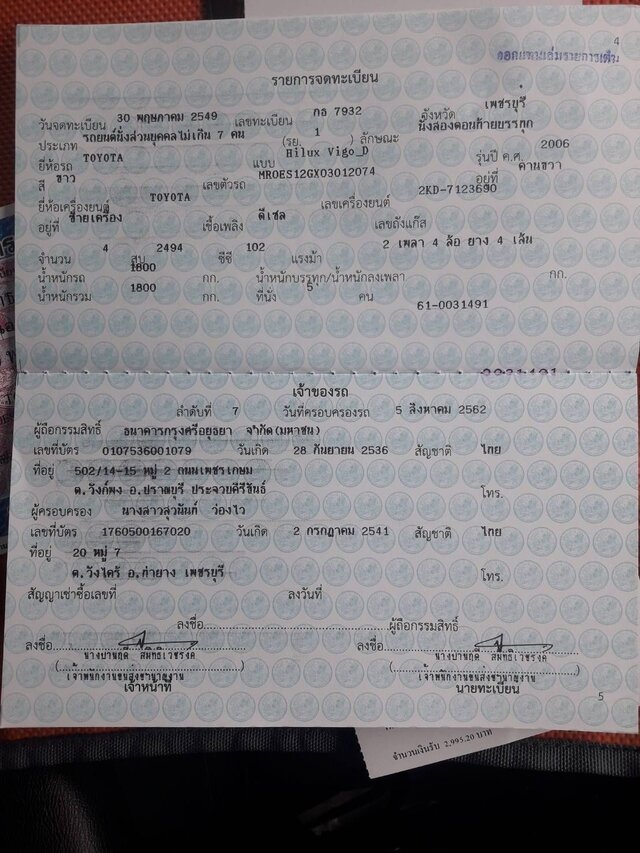 4
ออกแทนเล่มรายการเต็ม
รายการจดทะเบียน
วันจดทะเบียน 30 พฤษภาคม 2549 เลขทะเบียน กธ 7932 จังหวัด เพชรบุรี
ประเภท รถยนต์นั่งส่วนบุคคลไม่เกิน 7 คน (รย. 1 ) ลักษณะ นั่งสองตอนท้ายบรรทุก
ยี่ห้อรถ TOYOTA แบบ Hilux Vigo_D รุ่นปี ค.ศ. 2006
สี ขาว เลขตัวรถ MROES12GX03012074 อยู่ที่ คานขวา
ยี่ห้อเครื่องยนต์ TOYOTA เลขเครื่องยนต์ 2KD-7123690
อยู่ที่ ซ้ายเครื่อง เชื้อเพลิง ดีเซล เลขถังแก๊ส
จำนวน 4 สูบ 2494 ซีซี 102 แรงม้า 2 เพลา 4 ล้อ ยาง 4 เส้น
น้ำหนักรถ 1800 กก. น้ำหนักบรรทุก/น้ำหนักลงเพลา กก.
น้ำหนักรวม 1800 กก. ที่นั่ง 5 คน
61-0031491
เจ้าของรถ
ลำดับที่ 7 วันที่ครอบครองรถ 5 สิงหาคม 2562
ผู้ถือกรรมสิทธิ์ ธนาคารกรุงศรีอยุธยา จำกัด(มหาชน)
เลขที่บัตร 0107536001079 วันเกิด 28 กันยายน 2536 สัญชาติ ไทย
ที่อยู่ 502/14-15 หมู่ 2 ถนนเพชรเกษม
ต.วังก์พง อ.ปราณบุรี ประจวบคีรีขันธ์ โทร.
ผู้ครอบครอง นางสาวสุวนันท์ ว่องไว
เลขที่บัตร 1760500167020 วันเกิด 2 กรกฎาคม 2541 สัญชาติ ไทย
ที่อยู่ 20 หมู่ 7
ต.วังไคร้ อ.ท่ายาง เพชรบุรี โทร.
สัญญาเช่าซื้อเลขที่ ลงวันที่
ลงชื่อ ผู้ถือกรรมสิทธิ์
ลงชื่อ ลงชื่อ
เจ้าพนักงานขนส่งชำนาญงาน เจ้าพนักงานขนส่งชำนาญงาน
เจ้าหน้าที่ นายทะเบียน
5
จำนวนเงินรับ 2,995.20 บาท